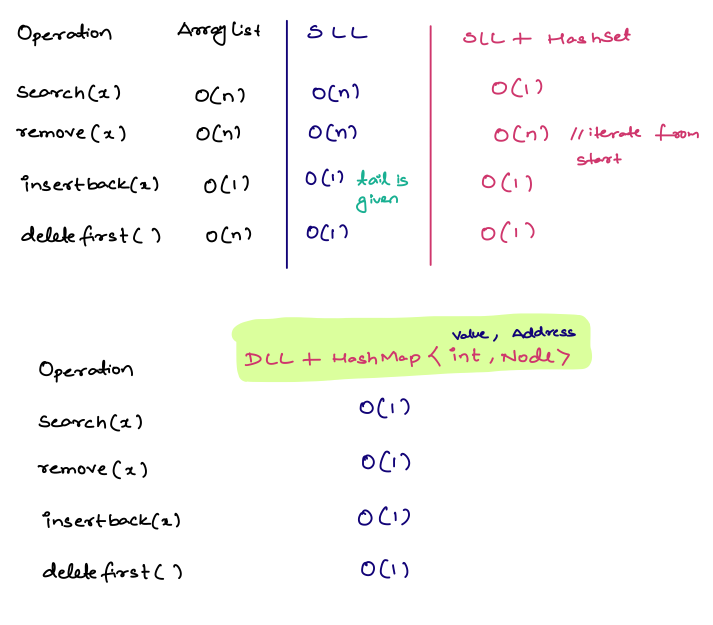 Operation Array List SLL SLL + HashSet
search(x) O(n) O(n) O(1)
remove(x) O(n) O(n) O(n) // iterate from
start
insertback(x) O(1) O(1) tail is
given O(1)
delete first() O(n) O(1) O(1)
Value, Address
Operation DLL + HashMap < int, Node >
search(x) O(1)
remove(x) O(1)
insertback(x) O(1)
delete first() O(1)